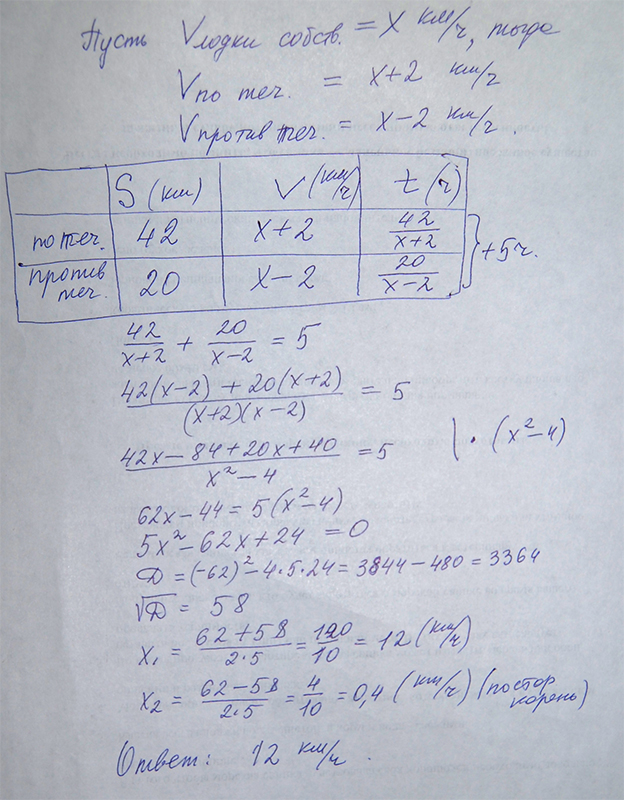 Пусть Vлодки собств. = x км/ч, тогда
Vпо теч. = x+2 км/ч
Vпротив теч. = x−2 км/ч.
S (км) V (км/ч) t (ч)
по теч. 42 x+2 42/(x+2)
против теч. 20 x−2 20/(x−2) } +5ч.
42/(x+2) + 20/(x−2) = 5
(42(x−2) + 20(x+2))/((x+2)(x−2)) = 5
(42x−84+20x+40)/(x²−4) = 5 | · (x²−4)
62x−44 = 5(x²−4)
5x²−62x+24 = 0
D = (−62)²−4·5·24 = 3844−480 = 3364
√D = 58
x₁ = (62+58)/(2·5) = 120/10 = 12 (км/ч)
x₂ = (62−58)/(2·5) = 4/10 = 0,4 (км/ч) (постор корень)
Ответ: 12 км/ч.